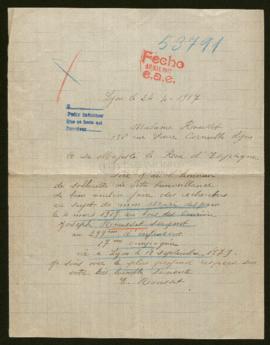 53791
Fecho
e.a.e.
Lyon le 24 4 1917
Madame Rousset
rue Pierre Corneille Lyon
a sa Majesté le Roi d'Espagne
Sire j'ai l'honneur
de solliciter de votre bienveillance
de bien vouloir faire des recherches
au sujet de mon mari disparu
le 4 mars 1917 au bois des
Joseph Rousset sergent
au 299ème d'infanterie
17ème compagnie
né à Lyon le 12 septembre 1879
Je suis avec le plus profond respect Sire
votre très humble servante